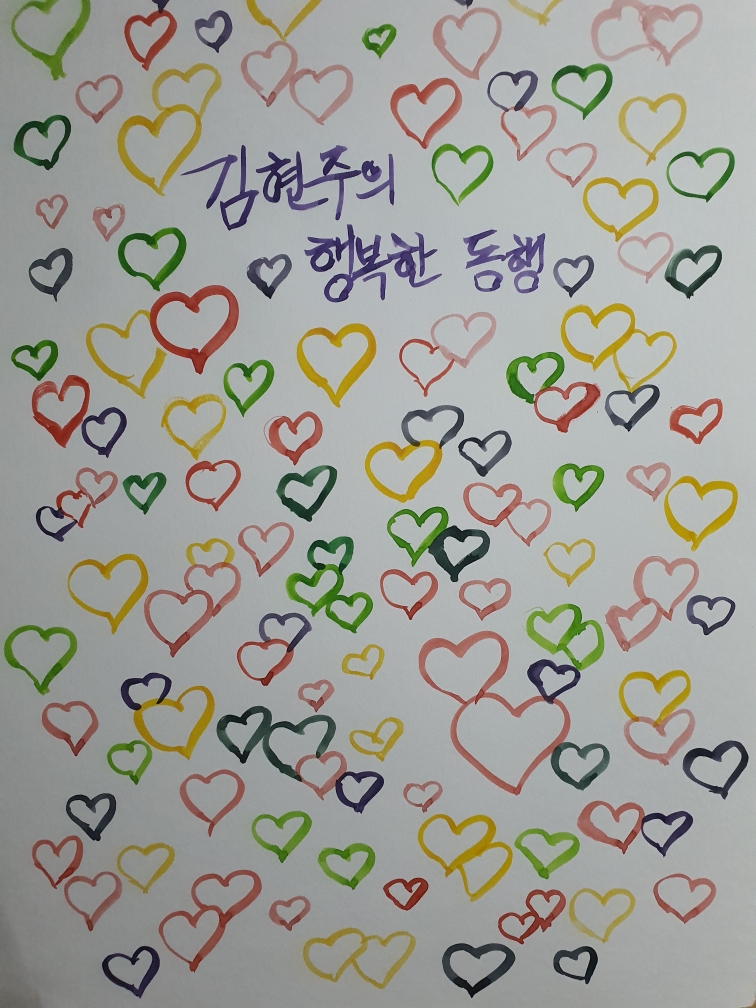 김현주의
행복한 동행